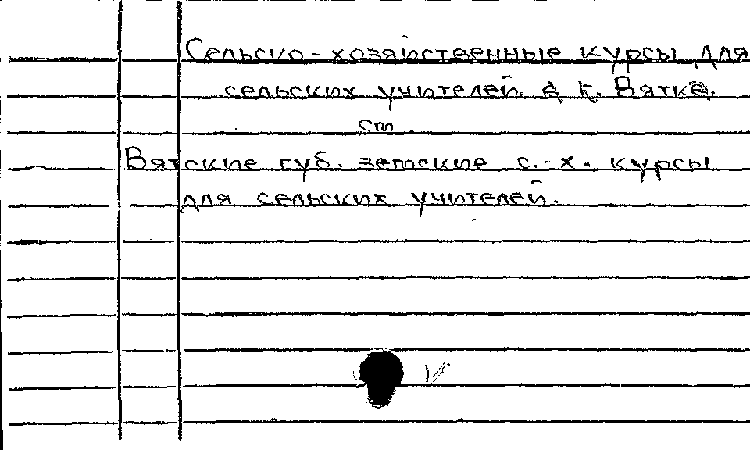 Сельско-хозяйственные курсы для
сельских учителей в г. Вятке.
см.
Вятские губ. земские с.-х. курсы
для сельских учителей.